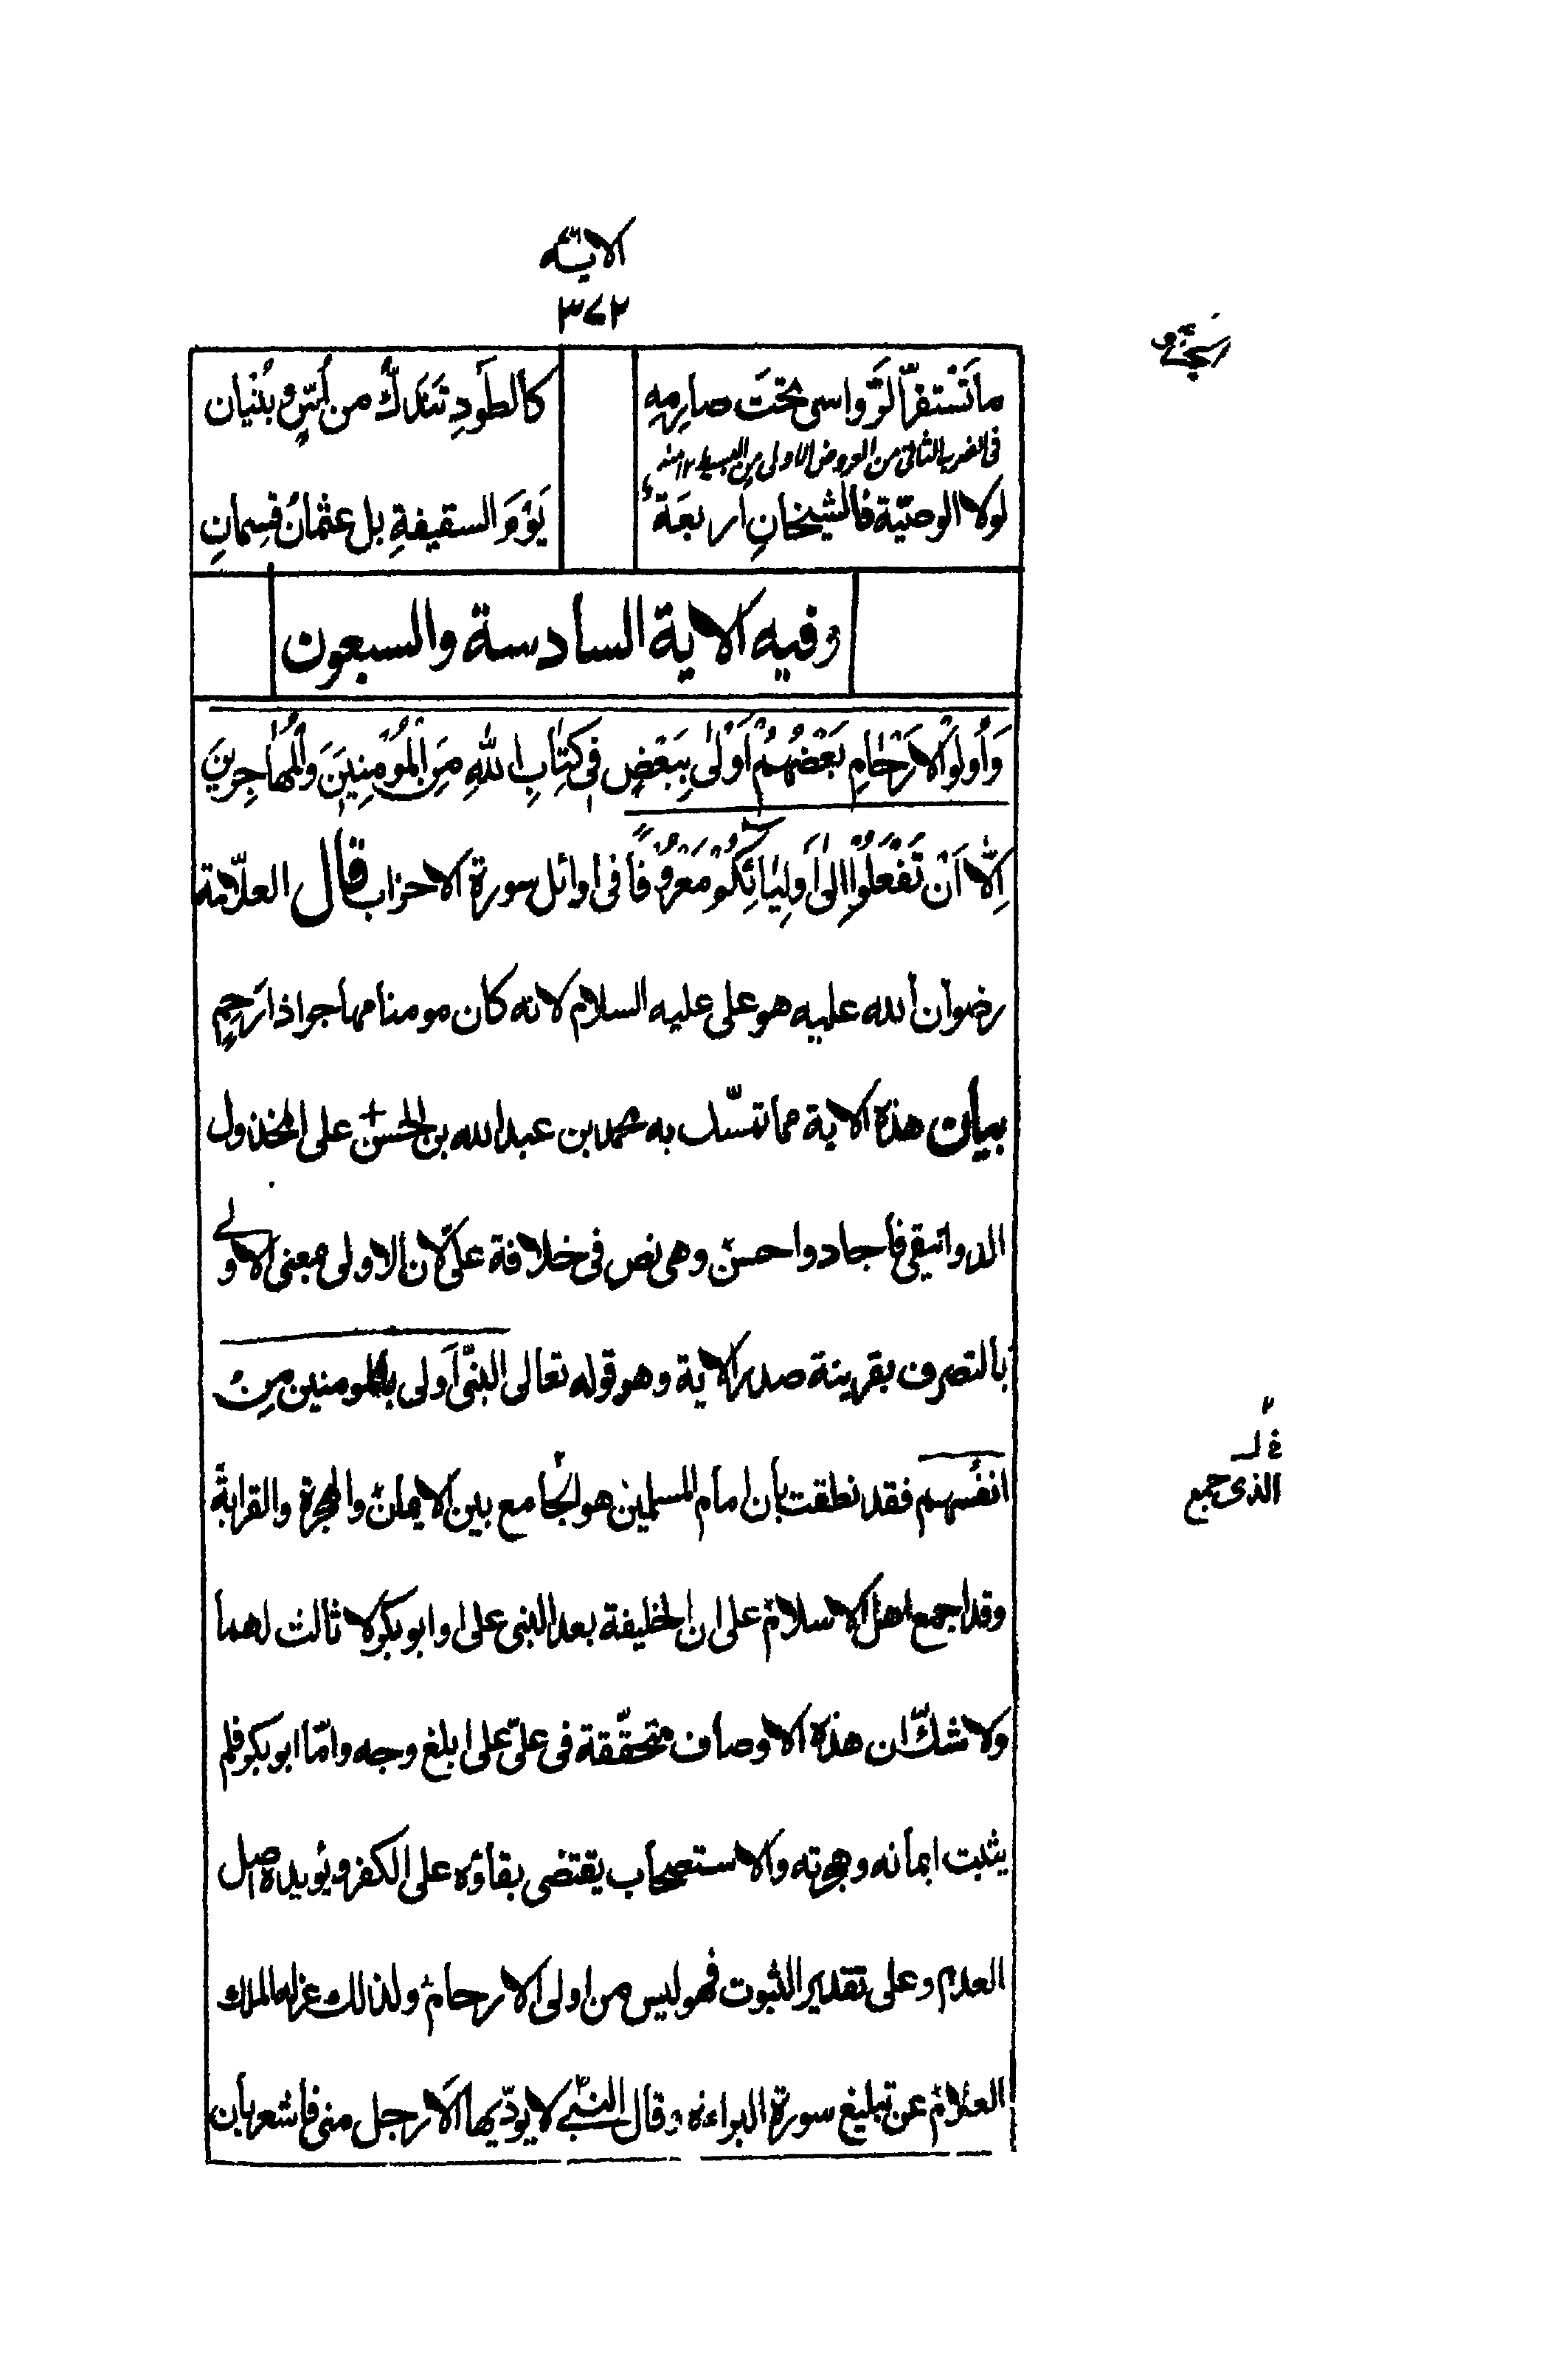 الاية
٣٧٢
ما تَستفزّ الرَّواسى تحتَ صارمِهِ كالطَودِ تندَكُّ من اُسٍّ و بُنْيان
فى الضرب الثانى من العروض الاولى من البسيط ١٢ منه
لولا الوصيّة فالشيخانِ اربعَة يَوْمَ السقيفةِ بل عثمانُ قِسمانِ
وفيه الاية السادسة والسبعون
وَاُولُوا الْاَرْحَامِ بَعْضُهُمْ اَوْلىٰ بِبَعْضٍ فِى كِتٰابِ اللهِ مِنَ الْمُؤْمِنِينَ وَالْمُهٰاجِرِينَ
اِلّٰا اَنْ تَفْعَلُوا اِلىٰ اَولِيٰائِكُمْ مَعْرُوفًا فى اوائل سورة الاحزاب قال العلّامة
رضوان الله عليه هو على عليه السلام لانه كان مومنا مهاجرا ذا رَحِمٍ
بيان هذه الاية مما تمسّك به محمد بن عبدالله بن الحسن على المخذول
الدوانيقى فاجاد واحسن وهى نص فى خلافة علىّ لان الاولى بمعنى الاولے
بالتصرف بقرينة صدر الاية وهو قوله تعالى النبىّ اَولى بالمومنين مِن
انفُسهم فقد نطقت بان امام المسلمين هو الجامع بين الايمان والهجرة والقرابة
الذى جمع
وقد اجمع اهل الاسلام على ان الخليفة بعد النبى على او ابوبكر لا ثالث لهما
ولا شكّ ان هذه الاوصاف متحقّقة فى علىّ على ابلغ وجه وامّا ابوبكر فلم
يثبت ايمانه وهجرته والاستصحاب يقتضى بقاؤه على الكفر ويؤيده اصل
العدم وعلى تقدير الثبوت فهو ليس من اولى الارحام ولذلك عزله الملك
العلّام عن تبليغ سورة البراءة وقال النبىّ لا يودّيها الّا رجل منى فاشعر بان